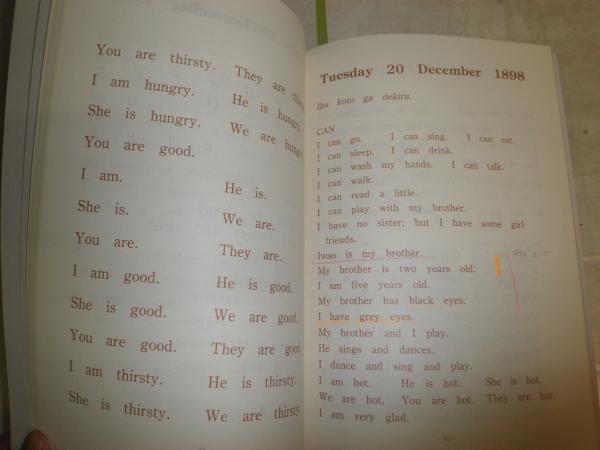 You are thirsty. They are
I am hungry. He is hungry.
She is hungry. We are hungry
You are good.
I am. He is.
She is. We are.
You are. They are.
I am good. He is good.
She is good. We are good.
You are good. They are good
I am thirsty. He is thirsty.
She is thirsty. We are thirsty.
Tuesday 20 December 1898
Iku koto ga dekiru.
CAN
I can go. I can sing. I can eat.
I can sleep. I can drink.
I can wash my hands. I can talk.
I can walk.
I can read a little.
I can play with my brother.
I have no sister; but I have some girl
friends.
Iwao is my brother.
My brother is two years old.
I am five years old.
My brother has black eyes.
I have grey eyes.
My brother and I play.
He sings and dances.
I dance and sing and play.
I am hot. He is hot. She is hot.
We are hot. You are hot. They are hot.
I am very glad.